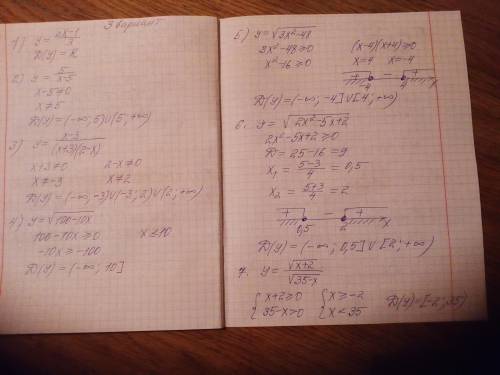 3 вариант
1) y = (2x-1)/x
D(y) = R
2) y = 5/(x-5)
x-5≠0
x≠5
D(y) = (-∞; 5)∪(5; +∞)
3) y = (x-3)/((x+3)(2-x))
x+3≠0 2-x≠0
x≠-3 x≠2
D(y) = (-∞; -3)∪(-3; 2)∪(2; +∞)
4) y = √(100-10x)
100-10x≥0 x≤10
-10x≥-100
D(y) = (-∞; 10]
5) y = √(3x²-48)
3x²-48≥0 (x-4)(x+4)≥0
x²-16≥0 x=4 x=-4
+ - +
-4 4 x
D(y) = (-∞; -4]∪[4; +∞)
6. y = √(2x²-5x+2)
2x²-5x+2≥0
D = 25-16 = 9
x₁ = (5-3)/4 = 0,5
x₂ = (5+3)/4 = 2
+ - +
0,5 2 x
D(y) = (-∞; 0,5]∪[2; +∞)
7. y = √(x+2)/√(35-x)
{x+2≥0 {x≥-2 D(y) = [-2; 35)
{35-x>0 {x<35